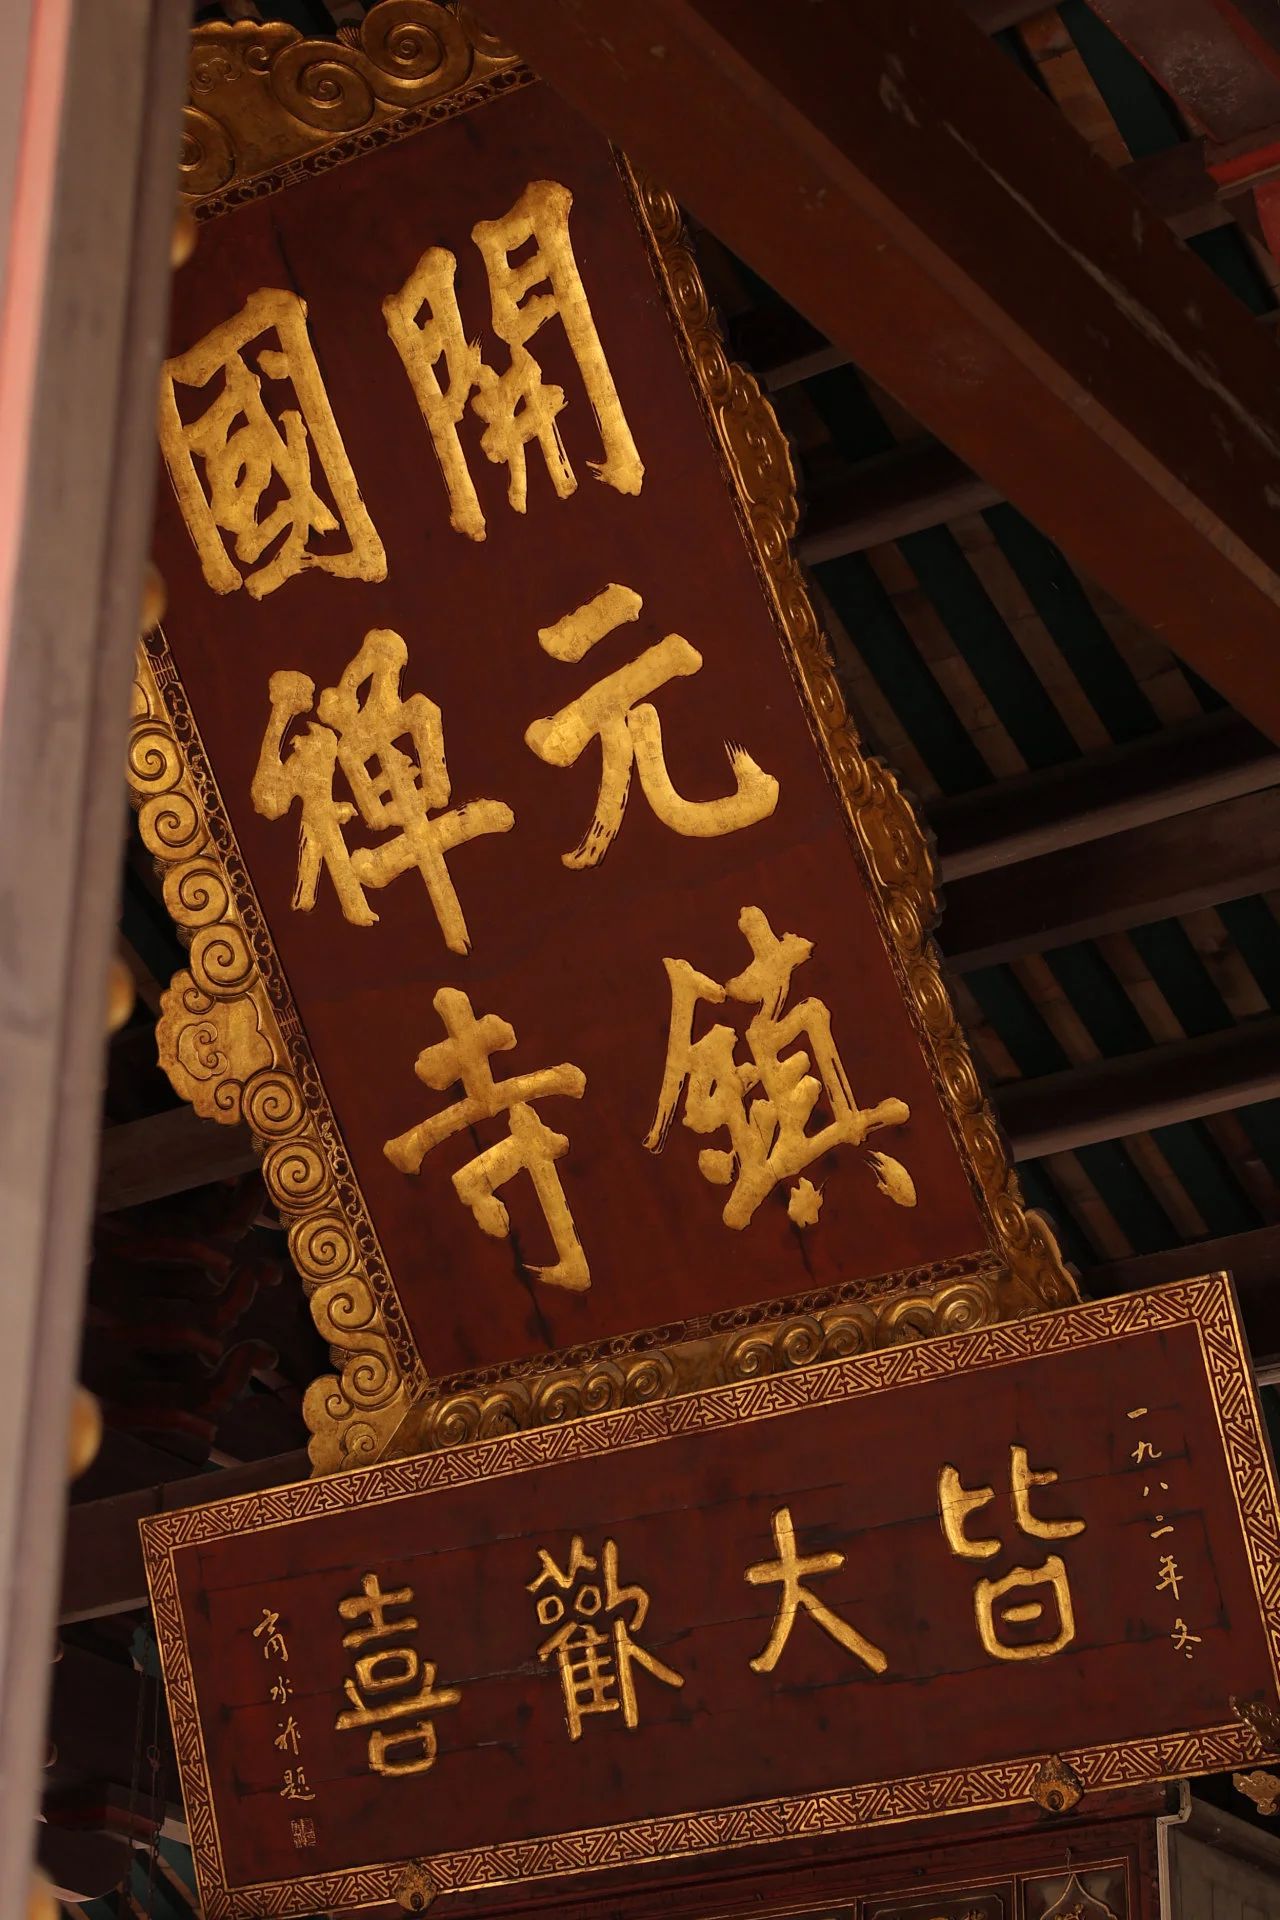 開元鎮
國禪寺
一九八二年冬
皆大歡喜
商承祚題